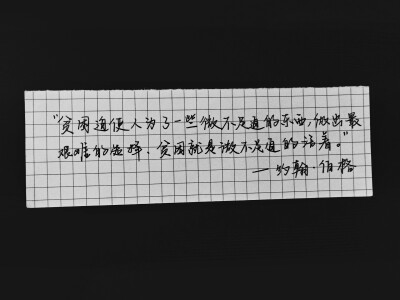 “贫困逼使人为了一些微不足道的东西,做出最
艰难的选择.贫困就是微不足道的活着。”
——约翰·伯格